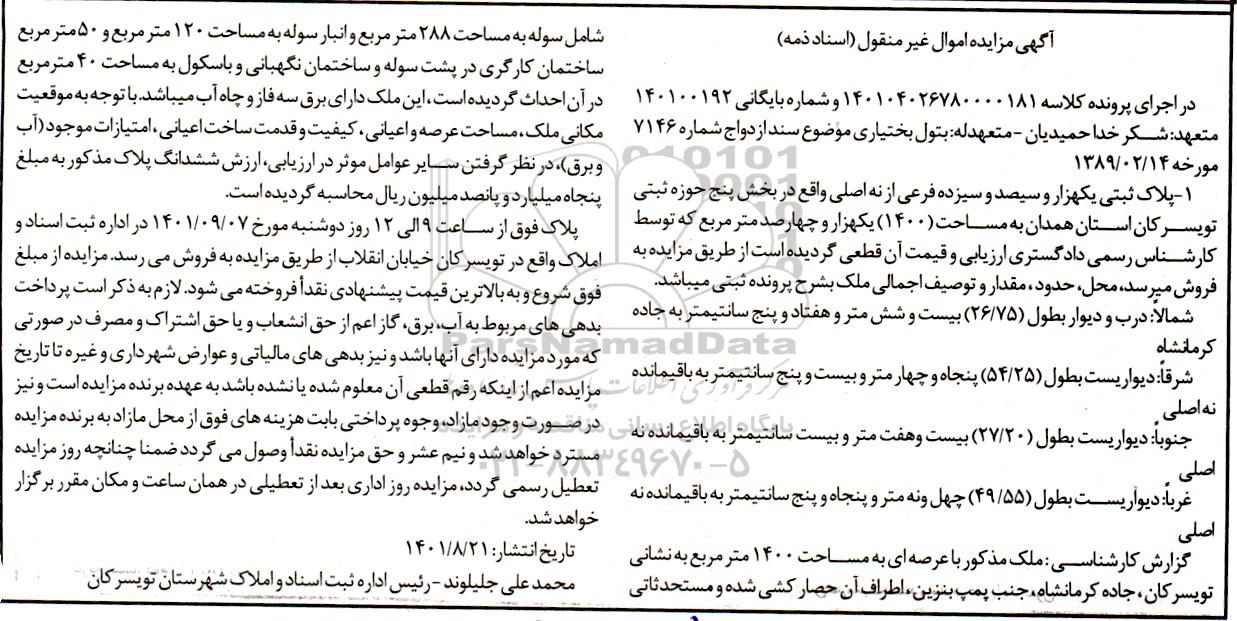 آگهی مزایده اموال غیر منقول (اسناد ذمه)
در اجرای پرونده کلاسه ۱۴۰۱۰۴۰۲۶۷۸۰۰۰۰۱۸۱ و شماره بایگانی ۱۴۰۱۰۰۱۹۲
متعهد: شکر خدا حمیدیان - متعهدله: بتول بختیاری موضوع سند ازدواج شماره ۷۱۴۶
مورخه ۱۳۸۹/۰۲/۱۴
۱-پلاک ثبتی یکهزار و سیصد و سیزده فرعی از نه اصلی واقع در بخش پنج حوزه ثبتی
تویسرکان استان همدان به مساحت (۱۴۰۰) یکهزار و چهارصد متر مربع که توسط
کارشناس رسمی دادگستری ارزیابی و قیمت آن قطعی گردیده است از طریق مزایده به
فروش میرسد، محل، حدود، مقدار و توصیف اجمالی ملک بشرح پرونده ثبتی میباشد.
شمالاً: درب و دیوار بطول (۲۶/۷۵) بیست و شش متر و هفتاد و پنج سانتیمتر به جاده
کرمانشاه
شرقاً: دیواریست بطول (۵۴/۲۵) پنجاه و چهار متر و بیست و پنج سانتیمتر به باقیمانده
نه اصلی
جنوباً: دیواریست بطول (۲۷/۲۰) بیست وهفت متر و بیست سانتیمتر به باقیمانده نه
اصلی
غرباً: دیواریست بطول (۴۹/۵۵) چهل ونه متر و پنجاه و پنج سانتیمتر به باقیمانده نه
اصلی
گزارش کارشناسی: ملک مذکور با عرصه ای به مساحت ۱۴۰۰ متر مربع به نشانی
تویسرکان، جاده کرمانشاه، جنب پمپ بنزین، اطراف آن حصار کشی شده و مستحدثاتی
شامل سوله به مساحت ۲۸۸ متر مربع و انبار سوله به مساحت ۱۲۰ متر مربع و ۵۰ متر مربع
ساختمان کارگری در پشت سوله و ساختمان نگهبانی و باسکول به مساحت ۴۰ متر مربع
در آن احداث گردیده است، این ملک دارای برق سه فاز و چاه آب میباشد. با توجه به موقعیت
مکانی ملک، مساحت عرصه و اعیانی، کیفیت و قدمت ساخت اعیانی، امتیازات موجود (آب
و برق)، در نظر گرفتن سایر عوامل موثر در ارزیابی، ارزش ششدانگ پلاک مذکور به مبلغ
پنجاه میلیارد و پانصد میلیون ریال محاسبه گردیده است.
پلاک فوق از ساعت ۹ الی ۱۲ روز دوشنبه مورخ ۱۴۰۱/۰۹/۰۷ در اداره ثبت اسناد و
املاک واقع در تویسرکان خیابان انقلاب از طریق مزایده به فروش می رسد. مزایده از مبلغ
فوق شروع و به بالاترین قیمت پیشنهادی نقداً فروخته می شود. لازم به ذکر است پرداخت
بدهی های مربوط به آب، برق، گاز اعم از حق انشعاب و یا حق اشتراک و مصرف در صورتی
که مورد مزایده دارای آنها باشد و نیز بدهی های مالیاتی و عوارض شهرداری و غیره تا تاریخ
مزایده اعم از اینکه رقم قطعی آن معلوم شده یا نشده باشد به عهده برنده مزایده است و نیز
در صورت وجود مازاد، وجوه پرداختی بابت هزینه های فوق از محل مازاد به برنده مزایده
مسترد خواهد شد و نیم عشر و حق مزایده نقداً وصول می گردد ضمنا چنانچه روز مزایده
تعطیل رسمی گردد، مزایده روز اداری بعد از تعطیلی در همان ساعت و مکان مقرر برگزار
خواهد شد.
تاریخ انتشار: ۱۴۰۱/۸/۲۱
محمد علی جلیلوند - رئیس اداره ثبت اسناد و املاک شهرستان تویسرکان
ParsNamadData
پایگاه اطلاع رسانی مناقصه و مزایده
۰۲۱-۸۸۳۴۹۶۷۰-۵